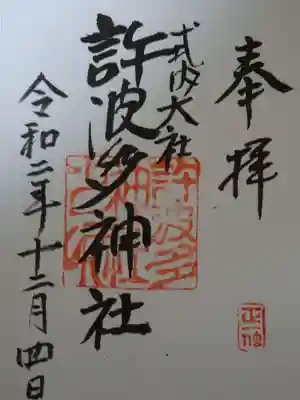 奉拝
式内大社
許波多神社
令和二年十二月四日
許波多
神社